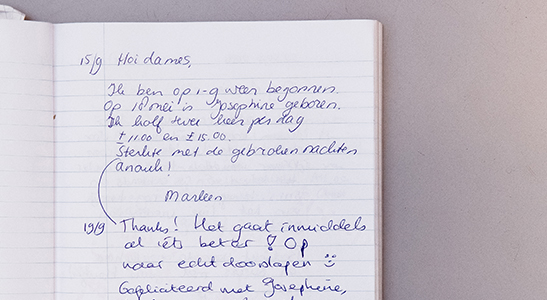 15/9 Hoi dames,
Ik ben op 1-9 weer begonnen.
Op 18 mei is Josephine geboren.
Ik kolf twee keer per dag
± 11.00 en ± 15.00.
Sterkte met de gebroken nachten
Anouk!
Marleen
19/9 Thanks! Het gaat inmiddels
al iets beter! Op
naar echt doorslapen
Gefeliciteerd met Josephine,